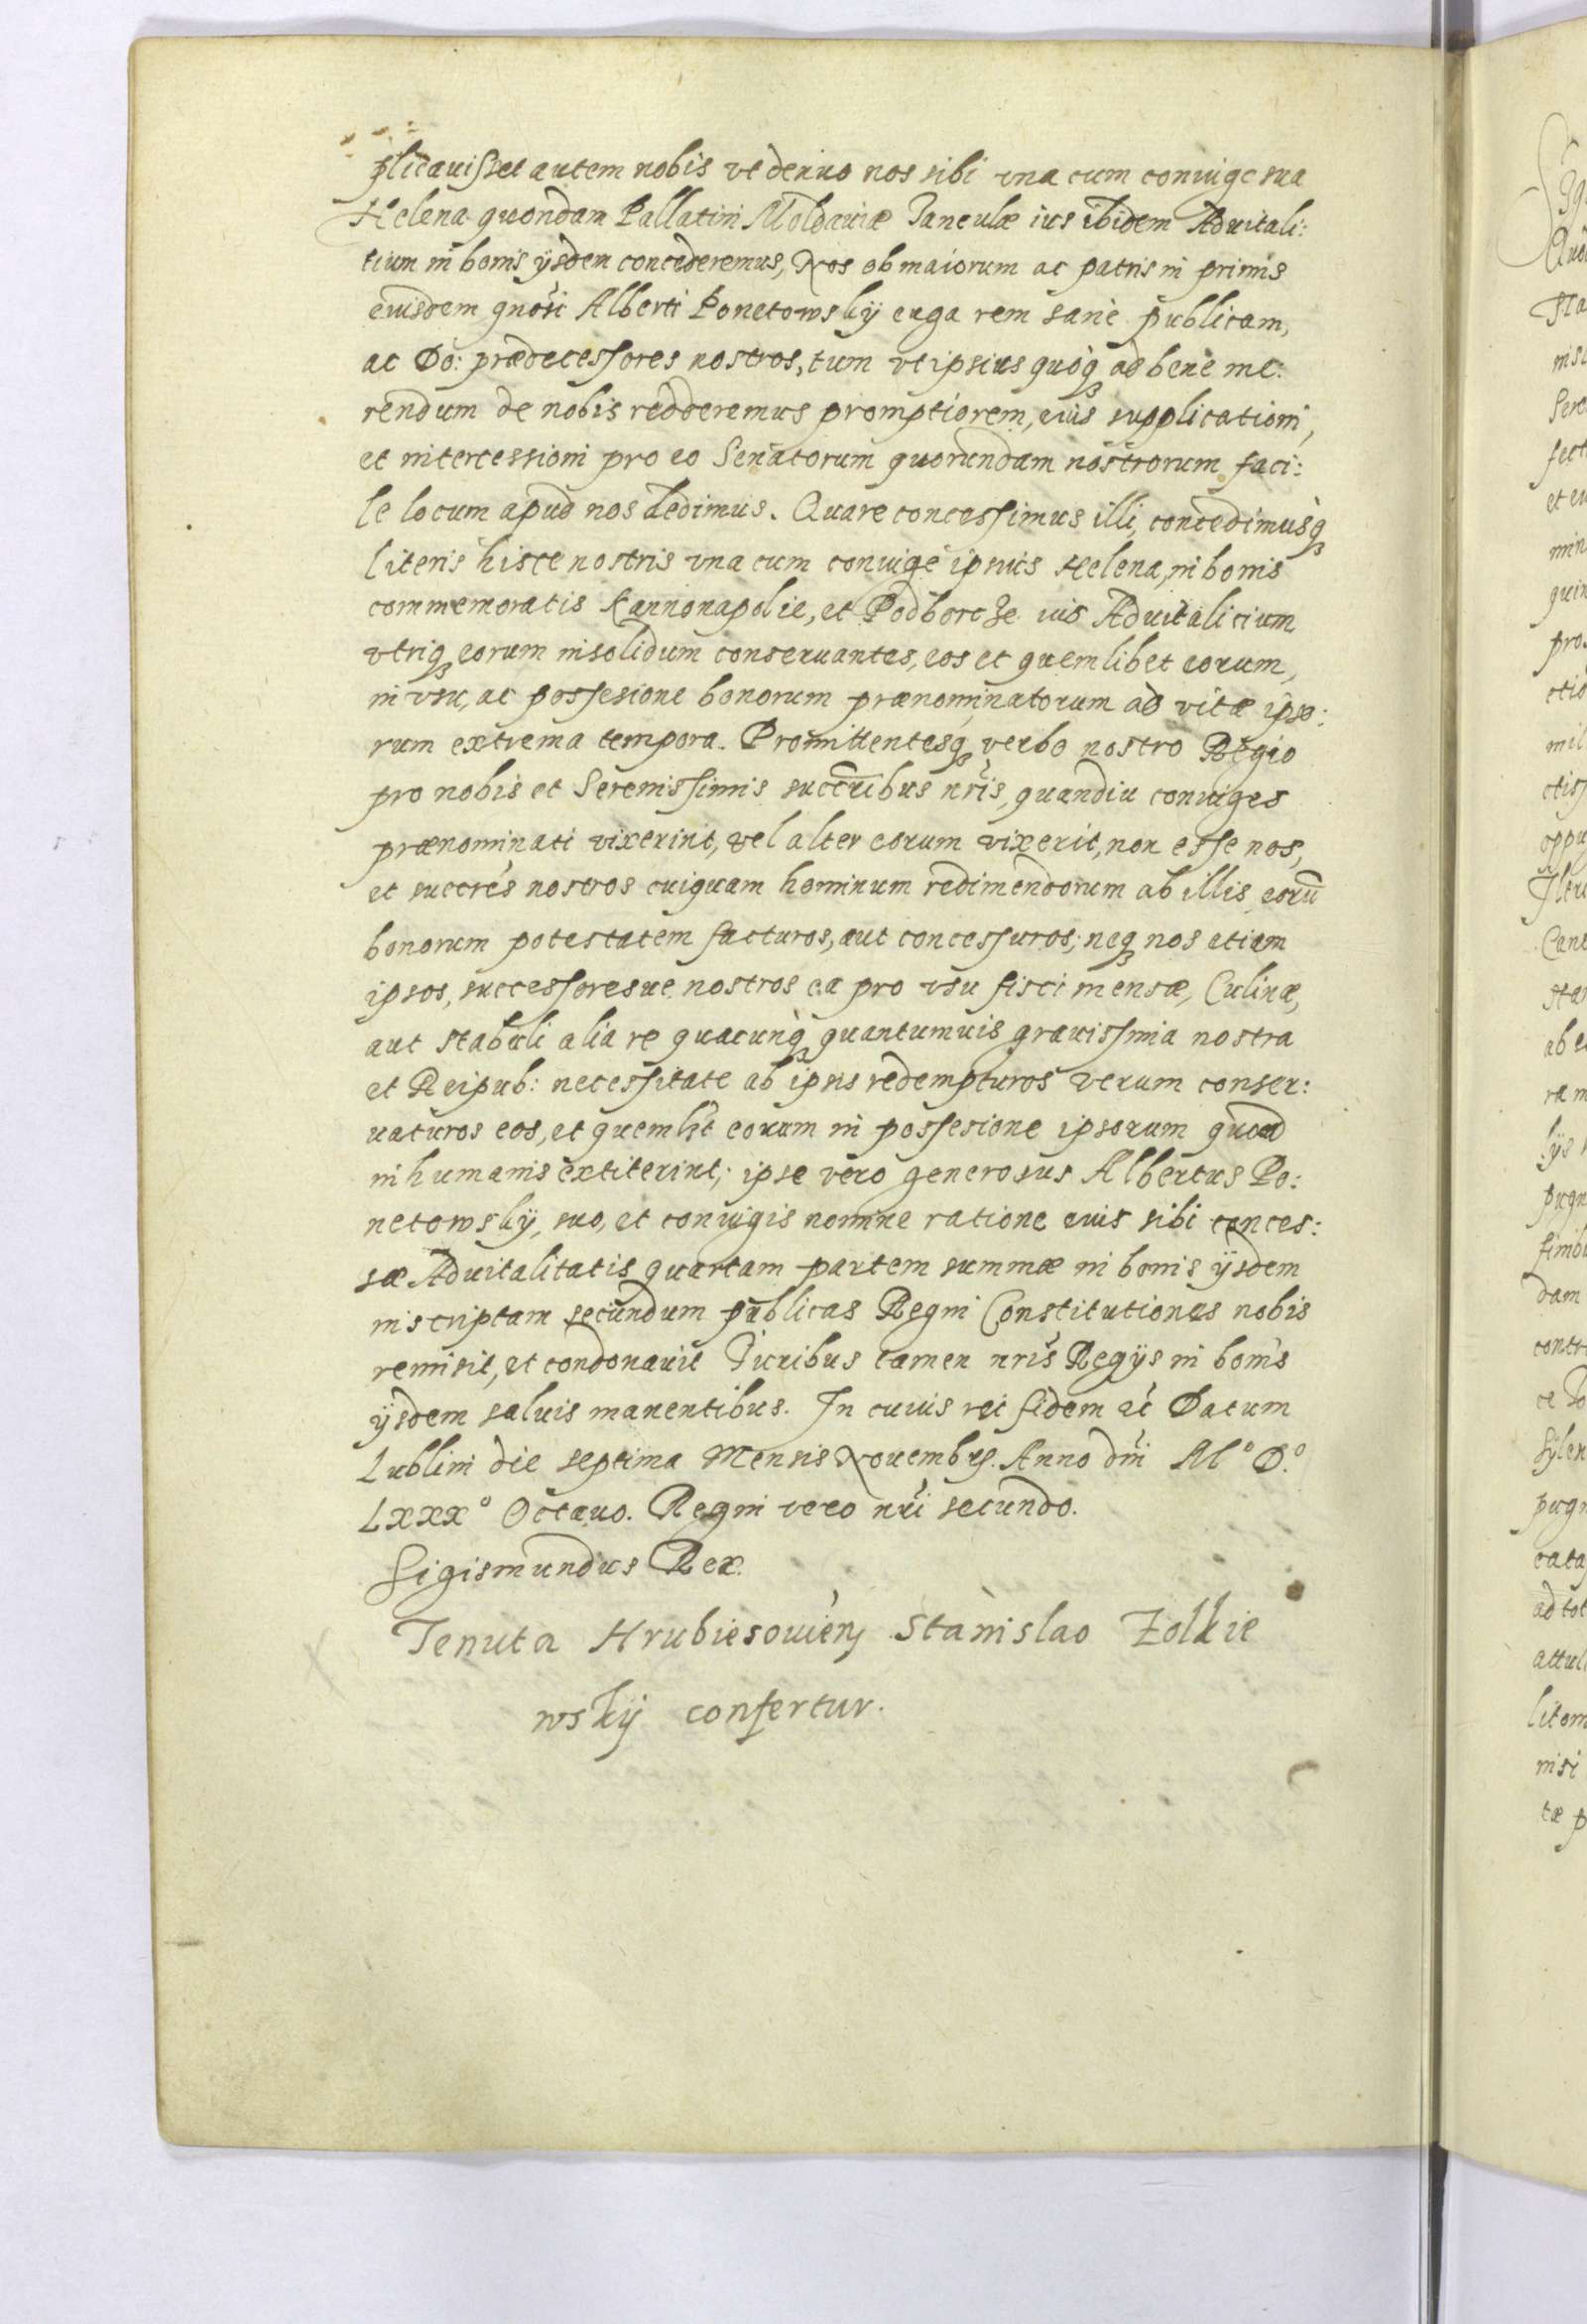 plicauisset autem nobis ut denuo nos sibi vna cum coniuge sua
Helena quondam Pallatini Moldauiæ Ianculæ ius ibidem Aduitali:
tium in bonis ijsdem concederemus, Nos ob maiorum ac patris in primis
eiusdem gnosi Alberti Ponetowskÿ erga rem sanè publicam,
ac Do: prædecessores nostros, tum vt ipsius quoq ad bene me:
rendum de nobis redderemus promptiorem, eius supplicationi,
et intercessioni pro eo Senatorum quorundam nostrorum faci:
le locum apud nos dedimus. Quare concessimus illi, concedimusq
literis hisce nostris vna cum coniuge ipsius Helena, in bonis
commemoratis Kannonapolie, et Podborcze ius Aduitalicium
vtriq eorum insolidum conseruantes, eos et quemlibet eorum,
in vsu, ac possesione bonorum prænominatorum ad vitæ ipso:
rum extrema tempora. Promittentesq verbo nostro Regio
pro nobis et Serenissimis succribus nris, quandiu coniuges
prænominati vixerint, vel alter eorum vixerit, non esse nos,
et succres nostros cuiquam hominum redimendorum ab illis eorū
bonorum potestatem facturos, aut concessuros; neq nos etiam
ipsos, successoresue nostros ea pro vsu fisci mensæ, Culinæ,
aut stabuli alia re quacunq quantumuis grauissima nostra
et Reipub: necessitate ab ipsis redempturos verum conser:
uaturos eos, et quemlit eorum in possesione ipsorum quoad
in humanis extiterint; ipse vero generosus Albertus Po:
netowskÿ, suo, et coniugis nomine ratione euis sibi conces:
sæ Aduitalitatis quartam partem summæ in bonis ijsdem
inscriptam secundum publicas Regni Constitutiones nobis
remisit, et condonauit Iuribus tamen nris Regijs in bonis
ijsdem saluis manentibus. In cuius rei fidem ac Datum
Lublini die septima Mensis Nouembrs. Anno dni M° D.°
Lxxx° Octauo. Regni vero nri secundo.
Sigismundus Rex.
Tenuta Hrubiesouien Stanislao Zolkie
wskÿ confertur.